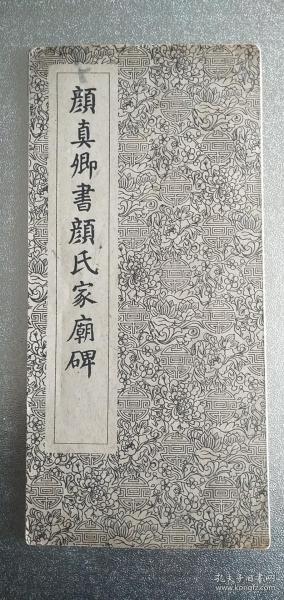 顔真卿書顔氏家廟碑
孔夫子旧书网
www.kongfz.com